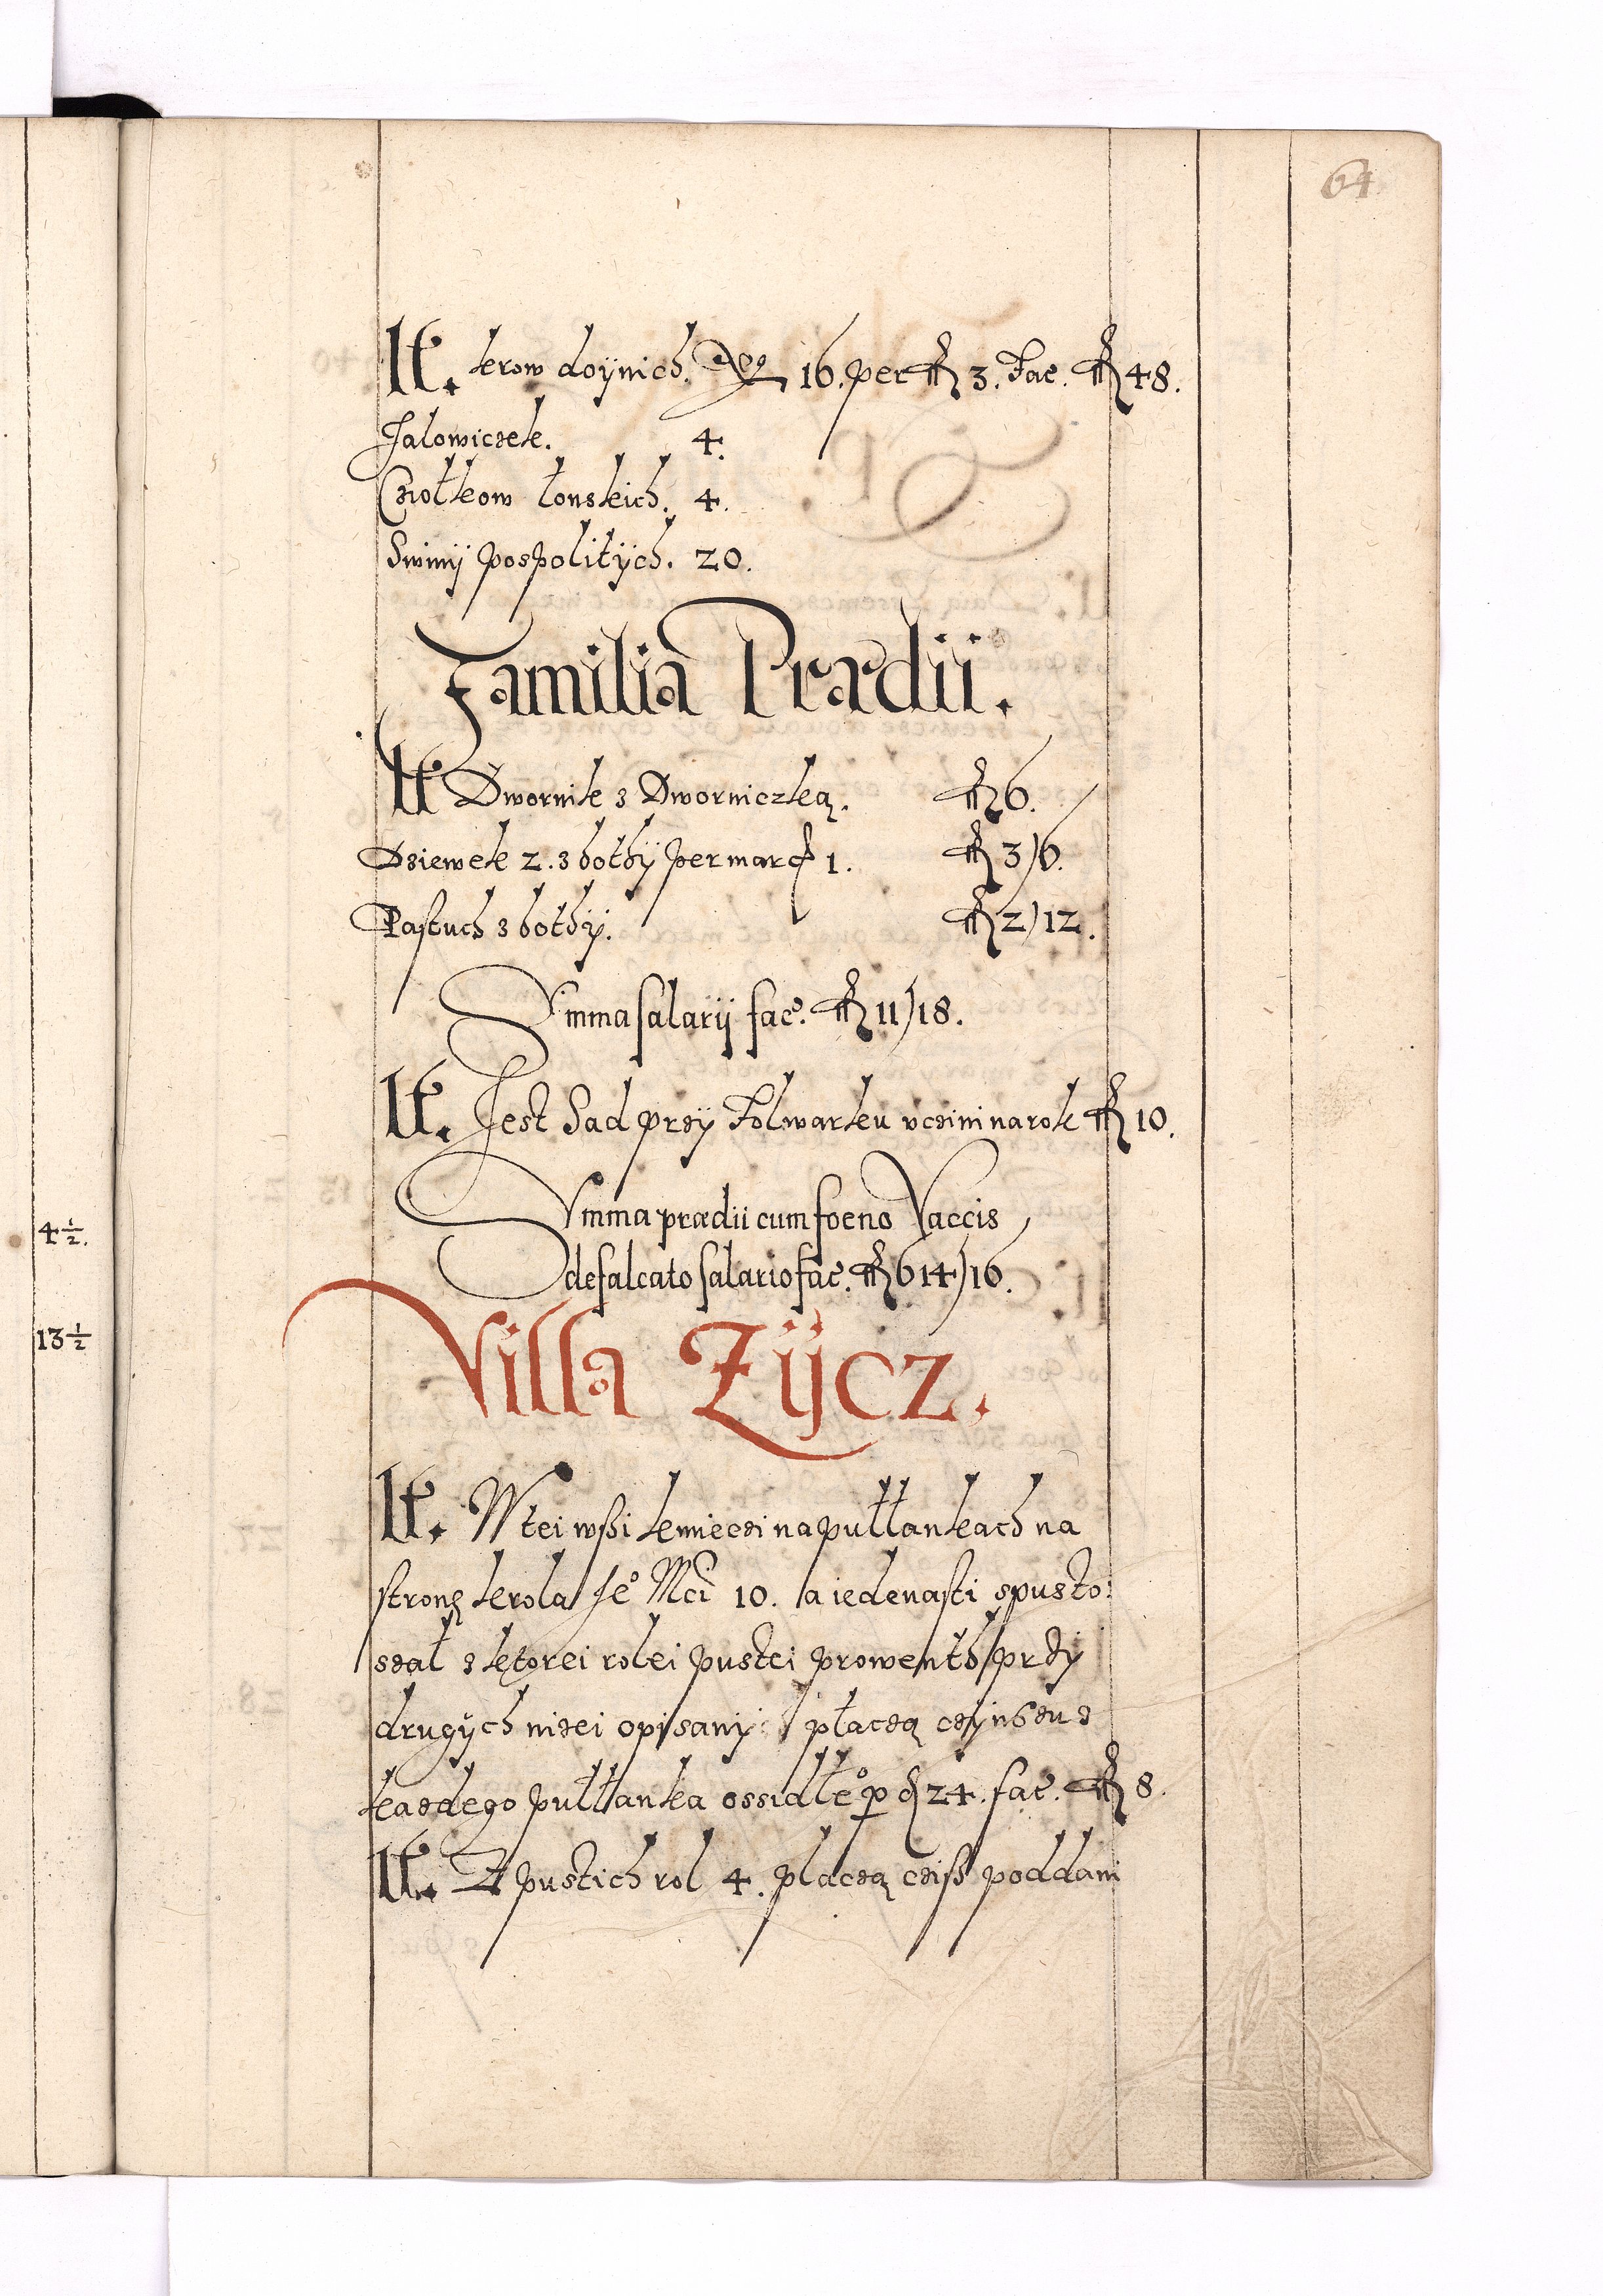 64
It. krow doÿnich. No 16. per fl 3. Fac. fl 48.
Jalowiczek. 4.
Cziołkow łonskich. 4.
Swinÿ pospolitÿch. 20.
Familia Prædii.
It Dwornik z Dworniczką. fl 6.
Dziewek 2. z bothÿ per marc 1. fl 3/6.
Pastuch z bothÿ. fl 2/12.
Summa salarÿ fac. fl 11/18.
It. Jest Sad przÿ Folwarku vczini na rok fl 10.
Summa prædii cum foeno Vaccis
defalcato salario fac. fl 614/16.
Villa Zÿcz.
It. W tei wsßi kmieczi na pułłankach na
stronę krola Jeº Mci 10. a iedenasti spusto:
szał z ktorei rolei pustei prowenth przÿ
drugÿch nizei opisanÿch płaczą czÿnszu z
kazdego pułłanka ossiadłeº p gr 24. fac. fl 8.
It. Z pustich rol 4. płaczą cziß poddani
4½.
13½